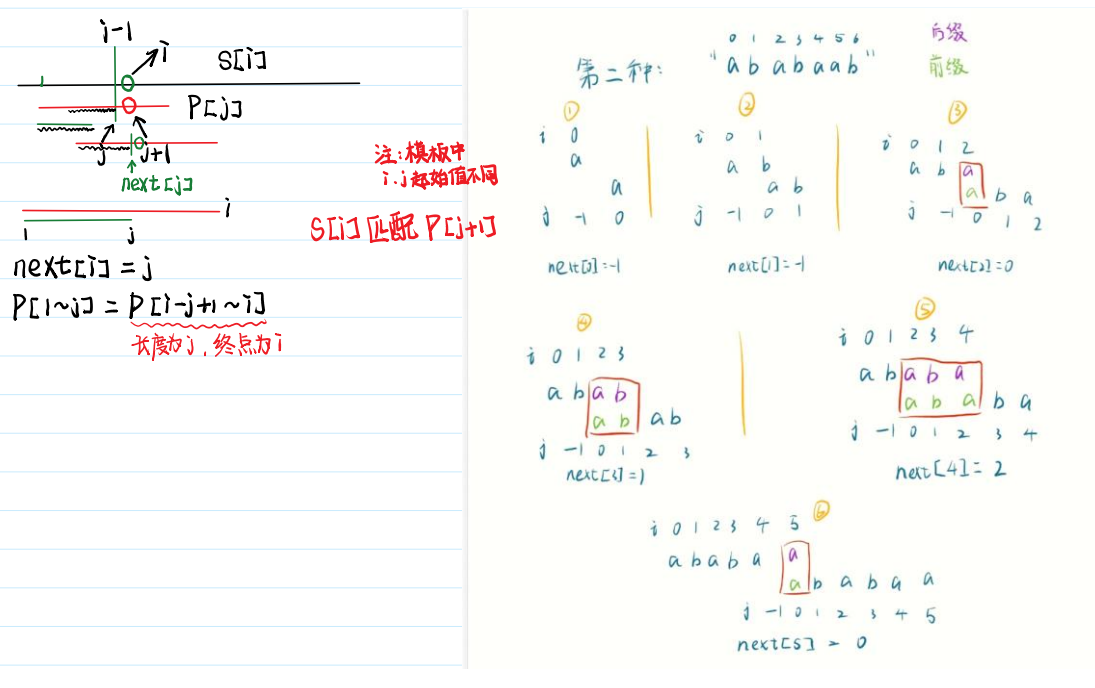 i-1
i
S[i]
P[j]
j
j+1
next[j]
注:模板中
i.j起始值不同
i
1
j
S[i] 匹配 P[j+1]
next[i] = j
P[1~j] = P[i-j+1~i]
长度为j,终点为i
0 1 2 3 4 5 6
第二种: "ababaab"
后缀
前缀
①
i 0
a
a
j -1 0
next[0]=-1
②
i 0 1
a b
a b
j -1 0 1
next[1]=-1
③
i 0 1 2
a b a
a b a
j -1 0 1 2
next[2]=0
④
i 0 1 2 3
a b a b
a b a b
j -1 0 1 2 3
next[3]=1
⑤
i 0 1 2 3 4
a b a b a
a b a b a
j -1 0 1 2 3 4
next[4]=2
⑥
i 0 1 2 3 4 5
a b a b a a
a b a b a a
j -1 0 1 2 3 4 5
next[5] = 0